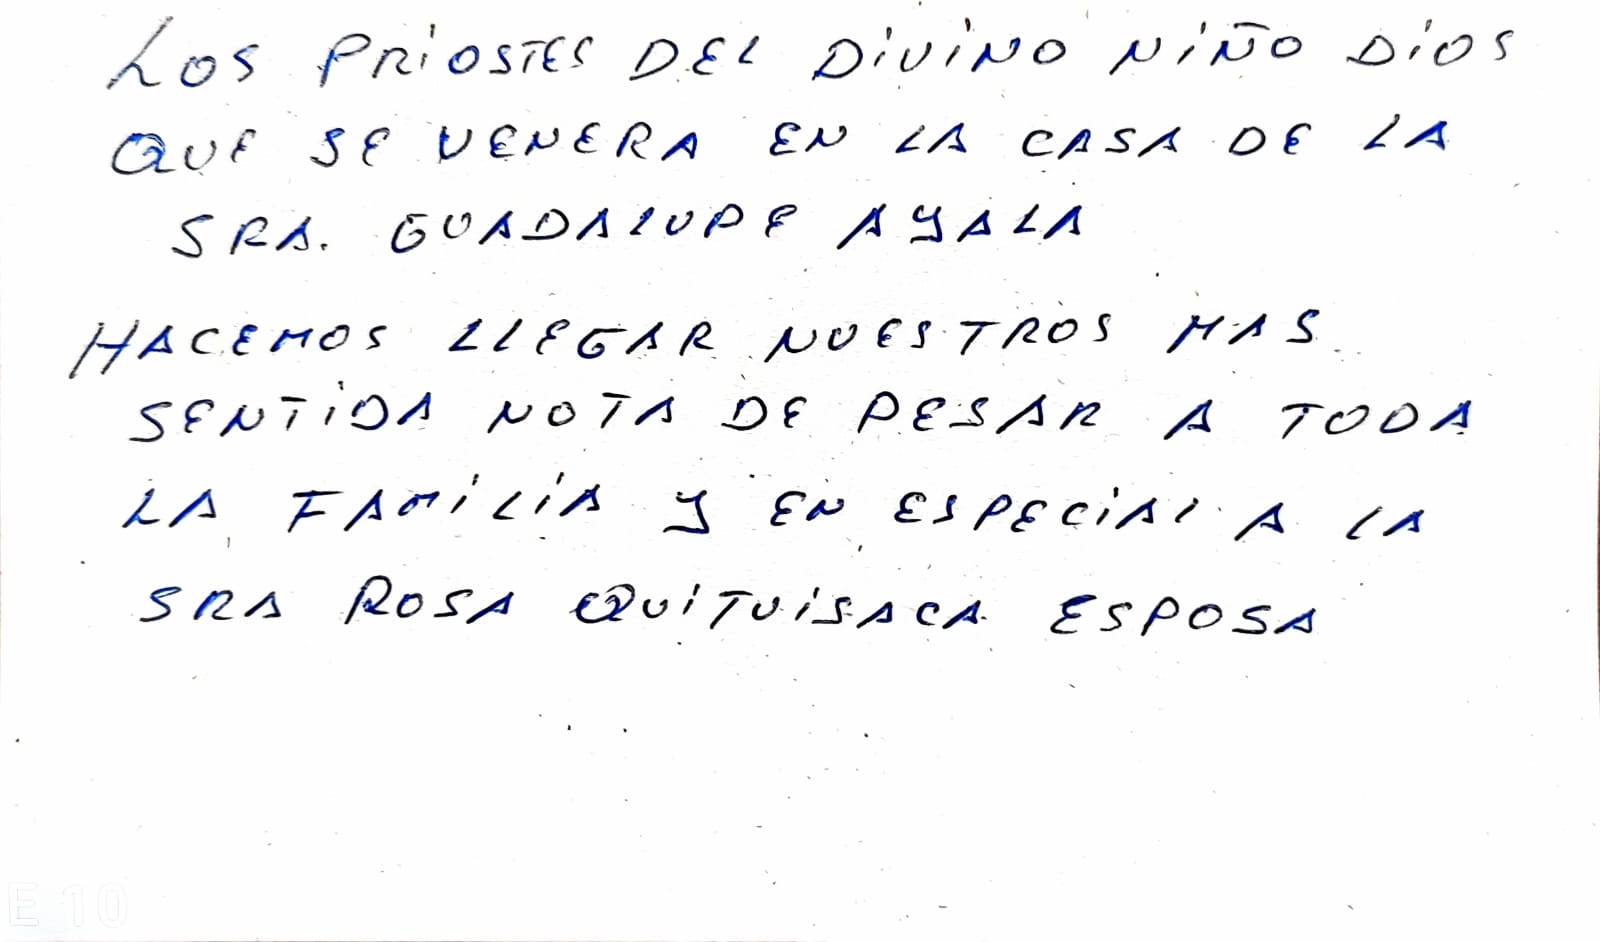 LOS PRIOSTES DEL DIVINO NIÑO DIOS
QUE SE VENERA EN LA CASA DE LA
SRA. GUADALUPE AYALA
HACEMOS LLEGAR NUESTROS MAS
SENTIDA NOTA DE PESAR A TODA
LA FAMILIA Y EN ESPECIAL A LA
SRA ROSA QUITUISACA ESPOSA
E 10